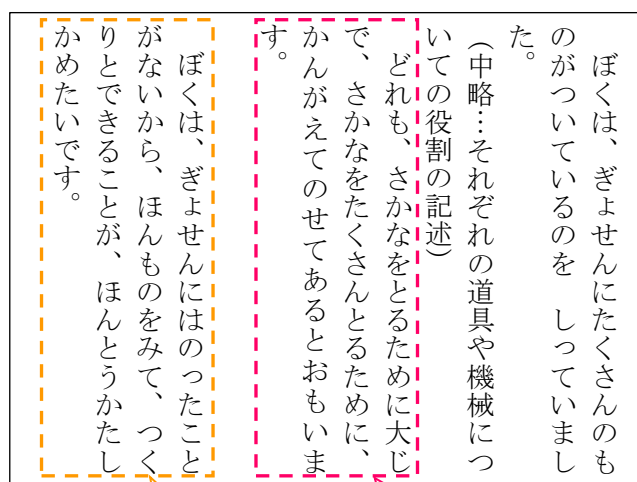 ぼくは、ぎょせんにたくさんのも
のがついているのを　しっていまし
た。
（中略…それぞれの道具や機械につ
いての役割の記述）
どれも、さかなをとるために大じ
で、さかなをたくさんとるために、
かんがえてのせてあるとおもいま
す。
ぼくは、ぎょせんにはのったこと
がないから、ほんものをみて、つく
りとできることが、ほんとうかたし
かめたいです。